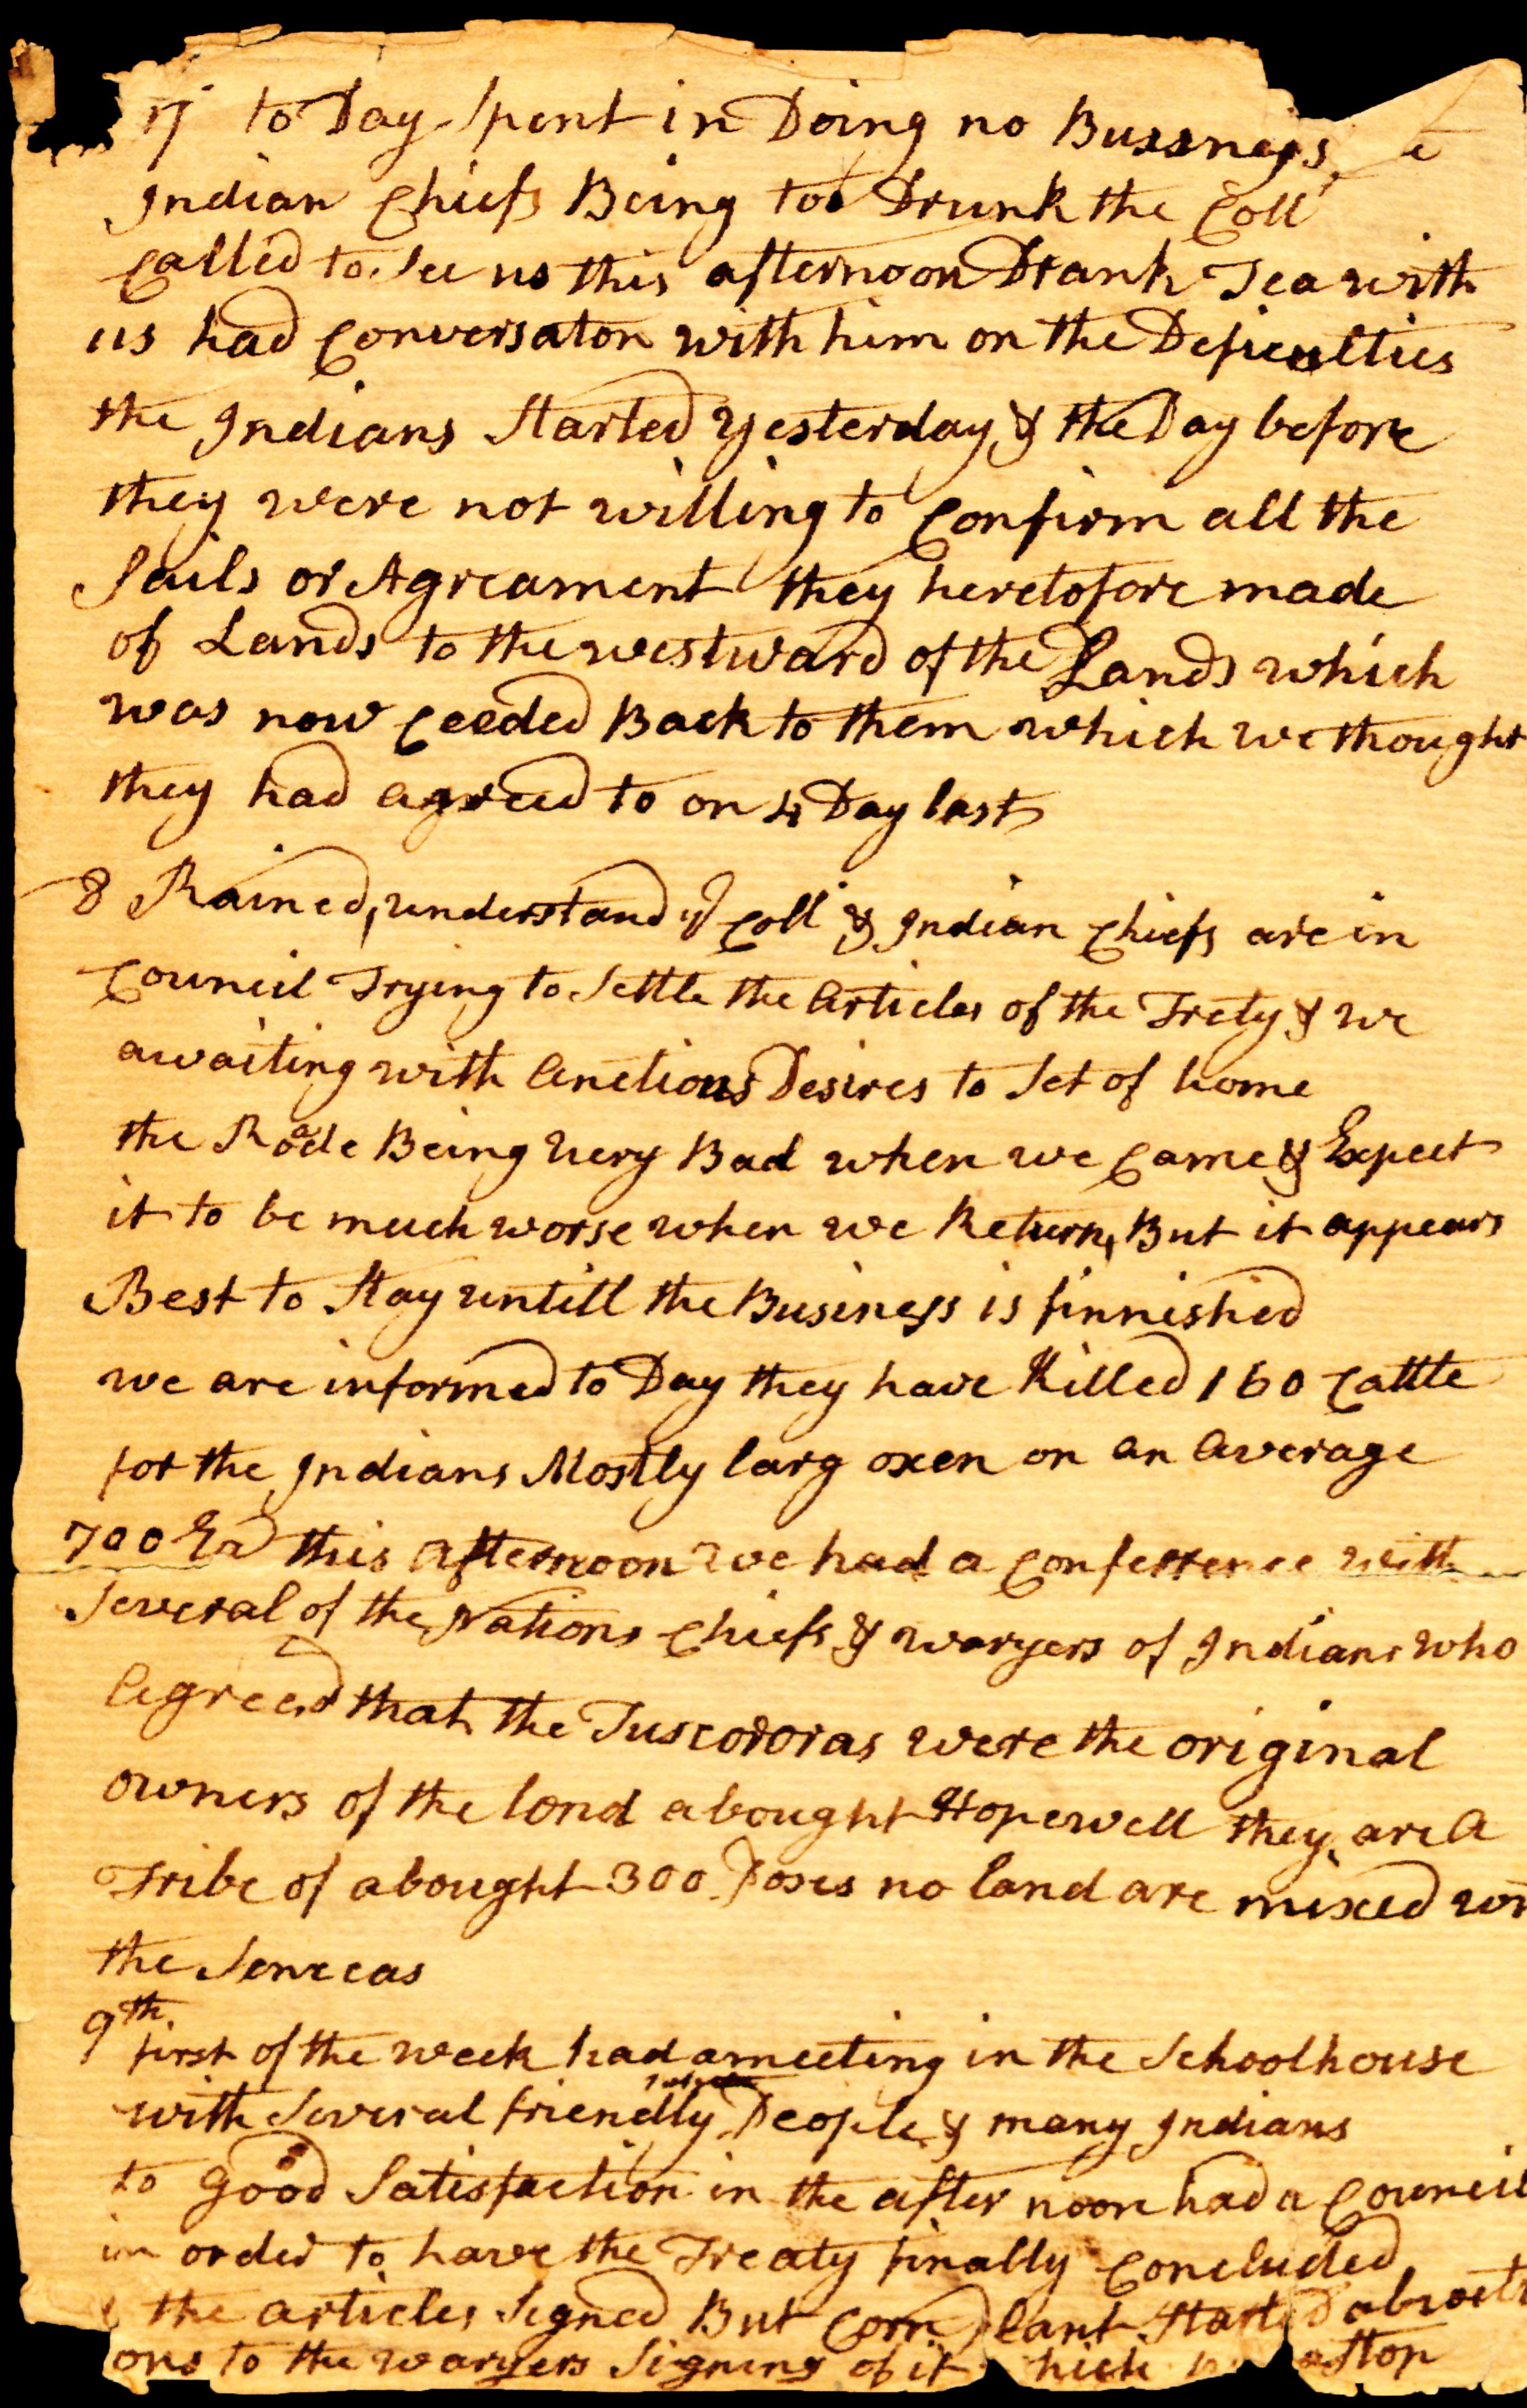 17 to Day Spent in Doing no Bussness
Indian Chiefs Being too Drunk the Coll
Called to See us this afternoon Drank Tea with
us had Conversaton with him on the Deficulties
the Indians Started Yesterday & the Day before
they were not willing to Confirm all the
Sails or Agreament they heretofore made
of Lands to the westward of the Lands which
was now Ceeded Back to them which we thought
they had agreed to on 4 Day last
8 Rained, understand ye Coll & Indian Chiefs are in
Council Trying to Settle the Articles of the Trety & we
awaiting with Anctious Desires to Set of home
the Roade Being very Bad when we Came & Expect
it to be much worse when we Return, But it appears
Best to Stay untill the Business is finnished
we are informed to Day they have Killed 160 Cattle
for the Indians Mostly larg oxen on an Average
700 this Afternoon we had a Conferrence with
Several of the Nations Chiefs & waryers of Indians who
Agreed that the Tuscororas were the original
owners of the land abought Hopewell they are A
Tribe of abought 300 Poses no land are mixed
the Senecas
9th first of the week had a meeting in the Schoolhouse
with Several friendly People & many Indians
to Good Satisfaction in the after noon had a Council
in order to have the Treaty finally Concluded
the articles Signed But Corn Plant Started
ons to the waryers Signing of it a Stop